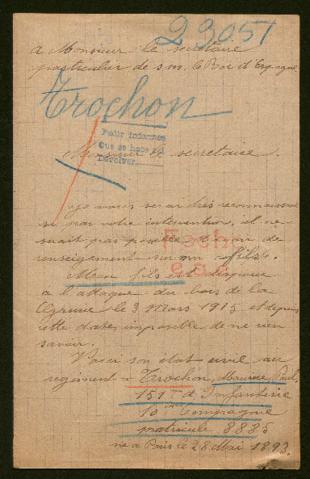 23051
A Monsieur le secrétaire
particulier de S.M. le Roi d'Espagne
Trochon
Pedir informes
Que se hace
Devolver
Monsieur le secrétaire.
je vous serai très reconnaissant
si par votre intervention, il ne
serait pas possible d'avoir de
renseignement sur mon fils.
Mon fils est disparu
a l'attaque du bois de la
le 3 Mars 1915 et depuis
cette date, impossible de ne rien
savoir.
Voici son état civil au
régiment Trochon, Maurice Paul
151me d'Infanterie
10me Compagnie
matricule 8885
né à Paris le 28 Mai 1893.